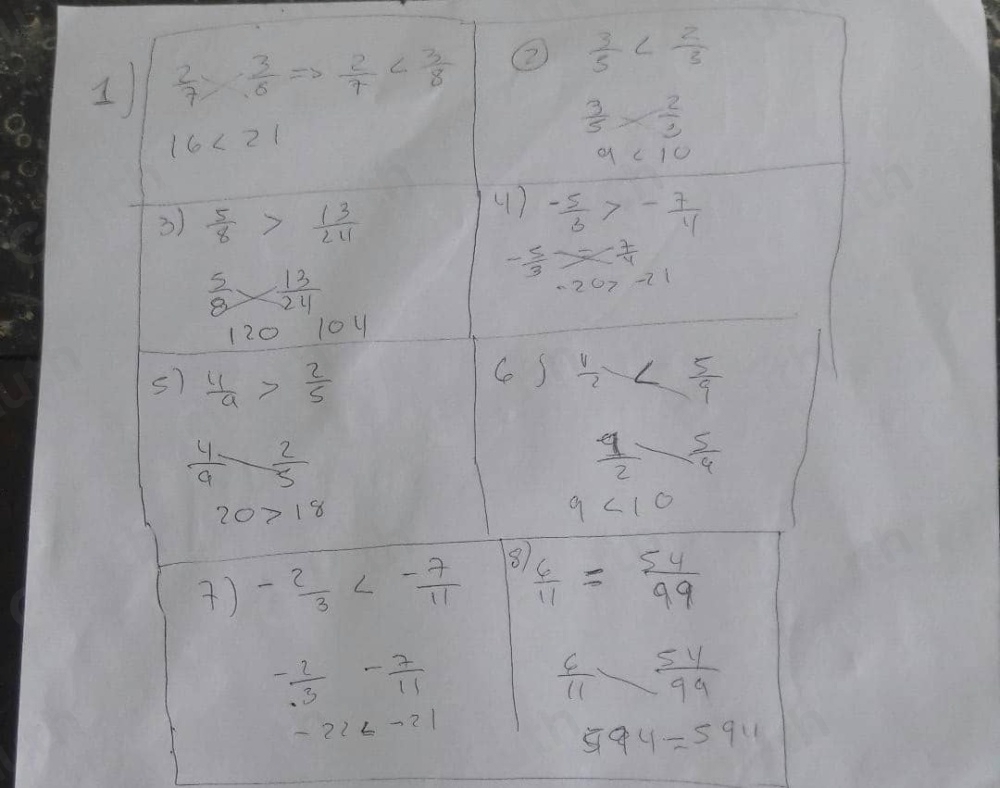 1) 2/7 3/8 => 2/7 < 3/8
16 < 21
2 3/5 < 2/3
3/5 2/3
9 < 10
3) 5/8 > 13/24
5/8 13/24
120 104
4) -5/3 > -7/4
-5/3 -7/4
-20 > -21
5) 4/9 > 2/5
4/9 2/5
20 > 18
6) 1/2 < 5/9
9/2 5/9
9 < 10
7) -2/3 < -7/11
-2/3 -7/11
-22 < -21
8) 6/11 = 54/99
6/11 54/99
594 = 594